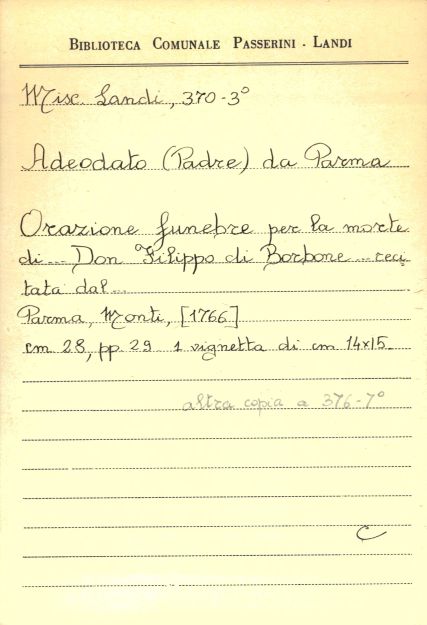 BIBLIOTECA COMUNALE PASSERINI - LANDI
Misc. Landi, 370-3°
Adeodato (Padre) da Parma
Orazione funebre per la morte
di... Don Filippo di Borbone... reci
tata dal...
Parma, Monti, [1766]
cm 28, pp. 29 1 vignetta di cm 14x15.
altra copia a 376-7°
C